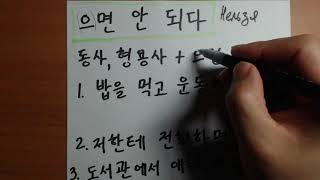 으면 안 되다 Нельзя
동사, 형용사 +
1. 밥을 먹고
2. 저한테
3. 도서관에서